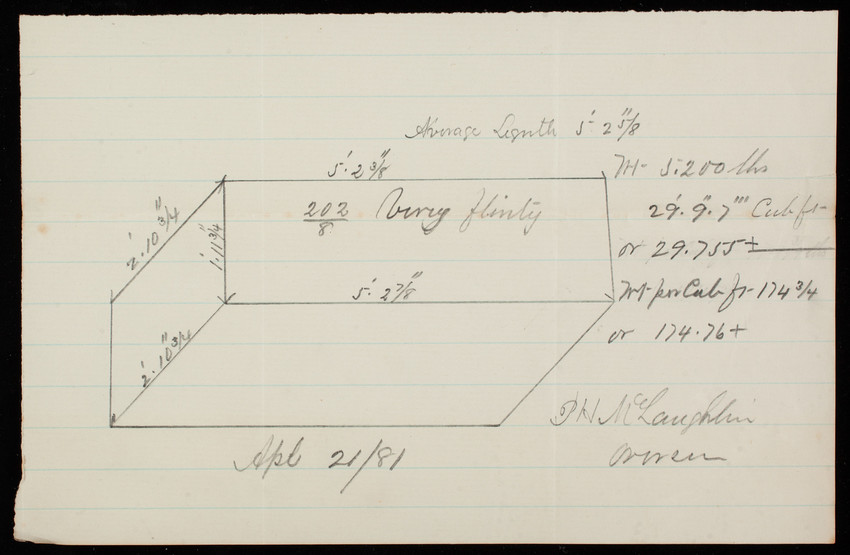 Average Legnth 5' 2 5/8"
5' 2 3/8"
Wt 5.200 lbs
202/8 Verey flinty
29'. 9". 7''' Cub ft
2'. 10 3/4"
1'. 11 3/4"
or 29.755+
5' 2 7/8"
Wt per Cub ft 174 3/4
or 174.76+
2'. 10 3/4"
P H McLaughlin
Apl 21/81
Overseer